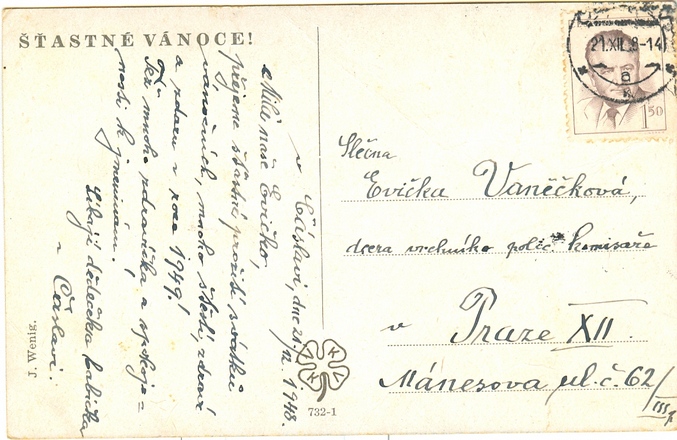 ŠŤASTNÉ VÁNOCE!
v Čáslavi, dne 21./XII. 1948.
Milá naše Evičko,
přejeme šťastné prožití svátků
vánočních, mnoho štěstí, zdraví
a zdaru v roce 1949!
Též mnoho zdravíčka a spokoje=
nosti k jmeninám!
Líbají dědeček a babička
v Čáslavi.
J. Wenig.
732-1
21.XII.8-14
1 50
Slečna
Evička Vaněčková,
dcera vrchního polic. komisaře
v Praze XII.
Mánesova ul. č. 62/IIIp.